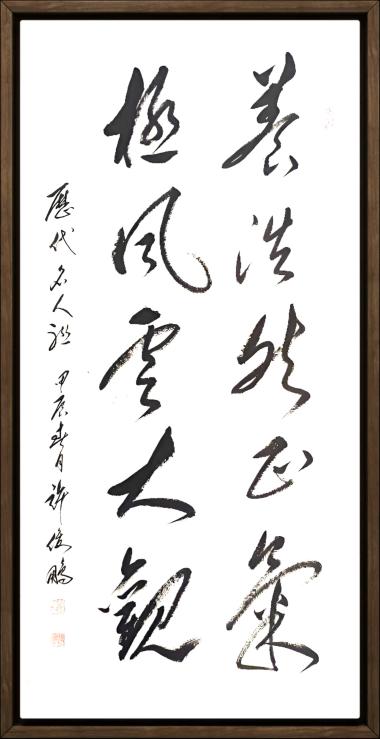 養浩然正氣
極風雲大觀
歷代名人聯 甲辰春月 許俊鵬